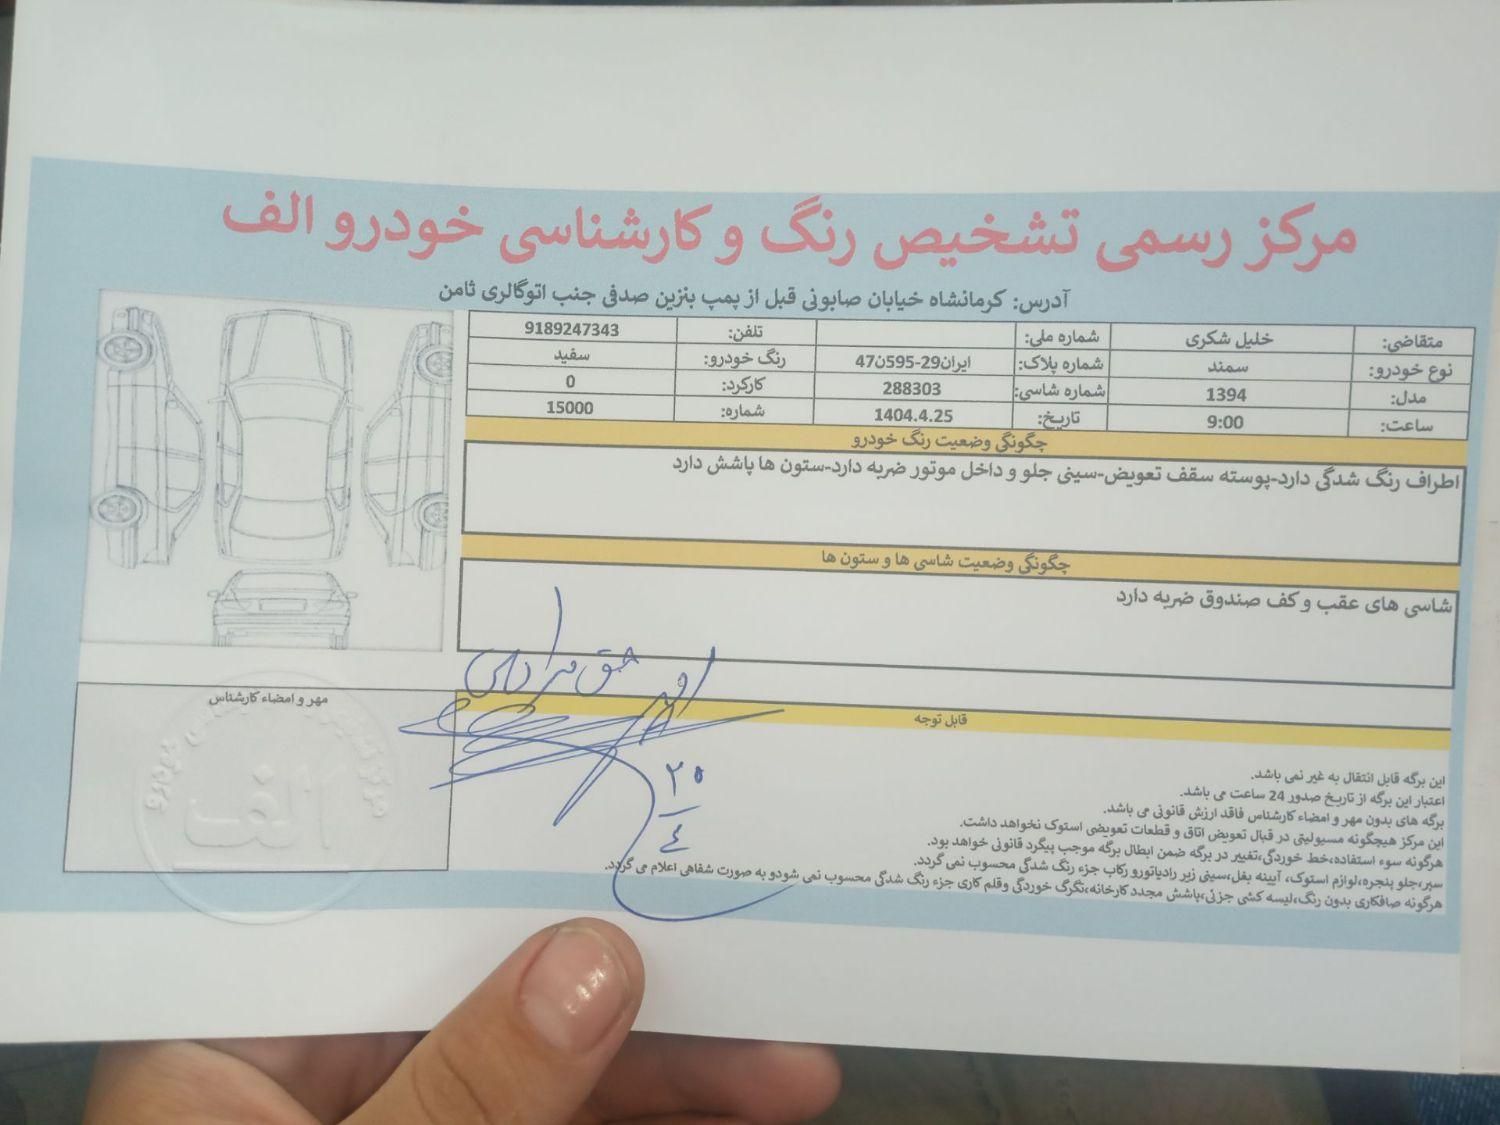 مرکز رسمی تشخیص رنگ و کارشناسی خودرو الف
آدرس: کرمانشاه خیابان صابونی قبل از پمپ بنزین صدفی جنب اتوگالری ثامن
متقاضی: خلیل شکری شماره ملی: تلفن: 9189247343
نوع خودرو: سمند شماره پلاک: ایران29-595ن47 رنگ خودرو: سفید
مدل: 1394 شماره شاسی: 288303 کارکرد: 0
ساعت: 9:00 تاریخ: 1404.4.25 شماره: 15000
چگونگی وضعیت رنگ خودرو
اطراف رنگ شدگی دارد-پوسته سقف تعویض-سینی جلو و داخل موتور ضربه دارد-ستون ها پاشش دارد
چگونگی وضعیت شاسی ها و ستون ها
شاسی های عقب و کف صندوق ضربه دارد
مهر و امضاء کارشناس
الف
قابل توجه
این برگه قابل انتقال به غیر نمی باشد.
اعتبار این برگه از تاریخ صدور 24 ساعت می باشد.
برگه های بدون مهر و امضاء کارشناس فاقد ارزش قانونی می باشد.
این مرکز هیچگونه مسیولیتی در قبال تعویض اتاق و قطعات تعویضی استوک نخواهد داشت.
هرگونه سوء استفاده،خط خوردگی،تغییر در برگه ضمن ابطال برگه موجب پیگرد قانونی خواهد بود.
سپر،جلو پنجره،لوازم استوک، آیینه بغل،سینی زیر رادیاتورو رکاب جزء رنگ شدگی محسوب نمی گردد.
هرگونه صافکاری بدون رنگ،لیسه کشی جزئی،پاشش مجدد کارخانه،تگرگ خوردگی وقلم کاری جزء رنگ شدگی محسوب نمی شودو به صورت شفاهی اعلام می گردد.
۲۵
۴